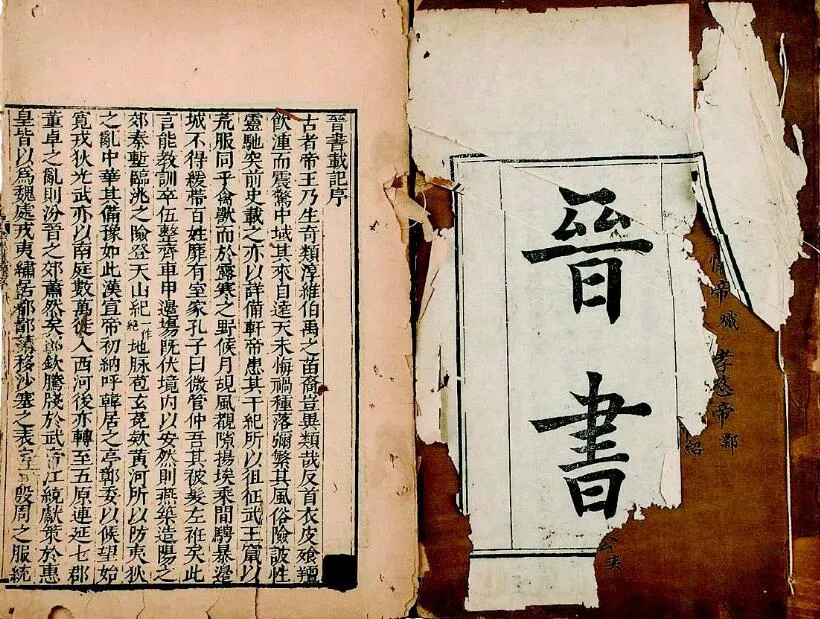 晉書
帝熾 孝愍帝鄴
紹
晉書載記序
古者帝王乃生奇類淳維伯禹之苗裔豈異類哉反首衣皮飱羶
飲湩而震驚中域其來自遠天未悔禍種落彌繁其風俗險詖性
靈馳突前史載之亦以詳備軒帝患其干紀所以徂征武王竄以
荒服同乎禽獸而於露寒之野候月覘風覩隙揚埃乘間騁暴邊
城不得緩帶百姓靡有室家孔子曰微管仲吾其被髮左袵矣此
言能教訓卒伍整齊車甲邊塲既伏境内以安然則燕築造陽之
郊秦塹臨洮之險登天山紀一作絕地脉苞玄菟欵黃河所以防夷狄
之亂中華其備豫如此漢宣帝初納呼韓居之亭鄣委以候望始
寛戎狄光武亦以南庭數萬徙入西河後亦轉至五原連延七郡
董卓之亂則汾晉之郊蕭然矣郭欽騰牋於武帝江統獻策於惠
皇皆以爲魏處戎夷繡居都鄙請移沙塞之表定殷周之服統